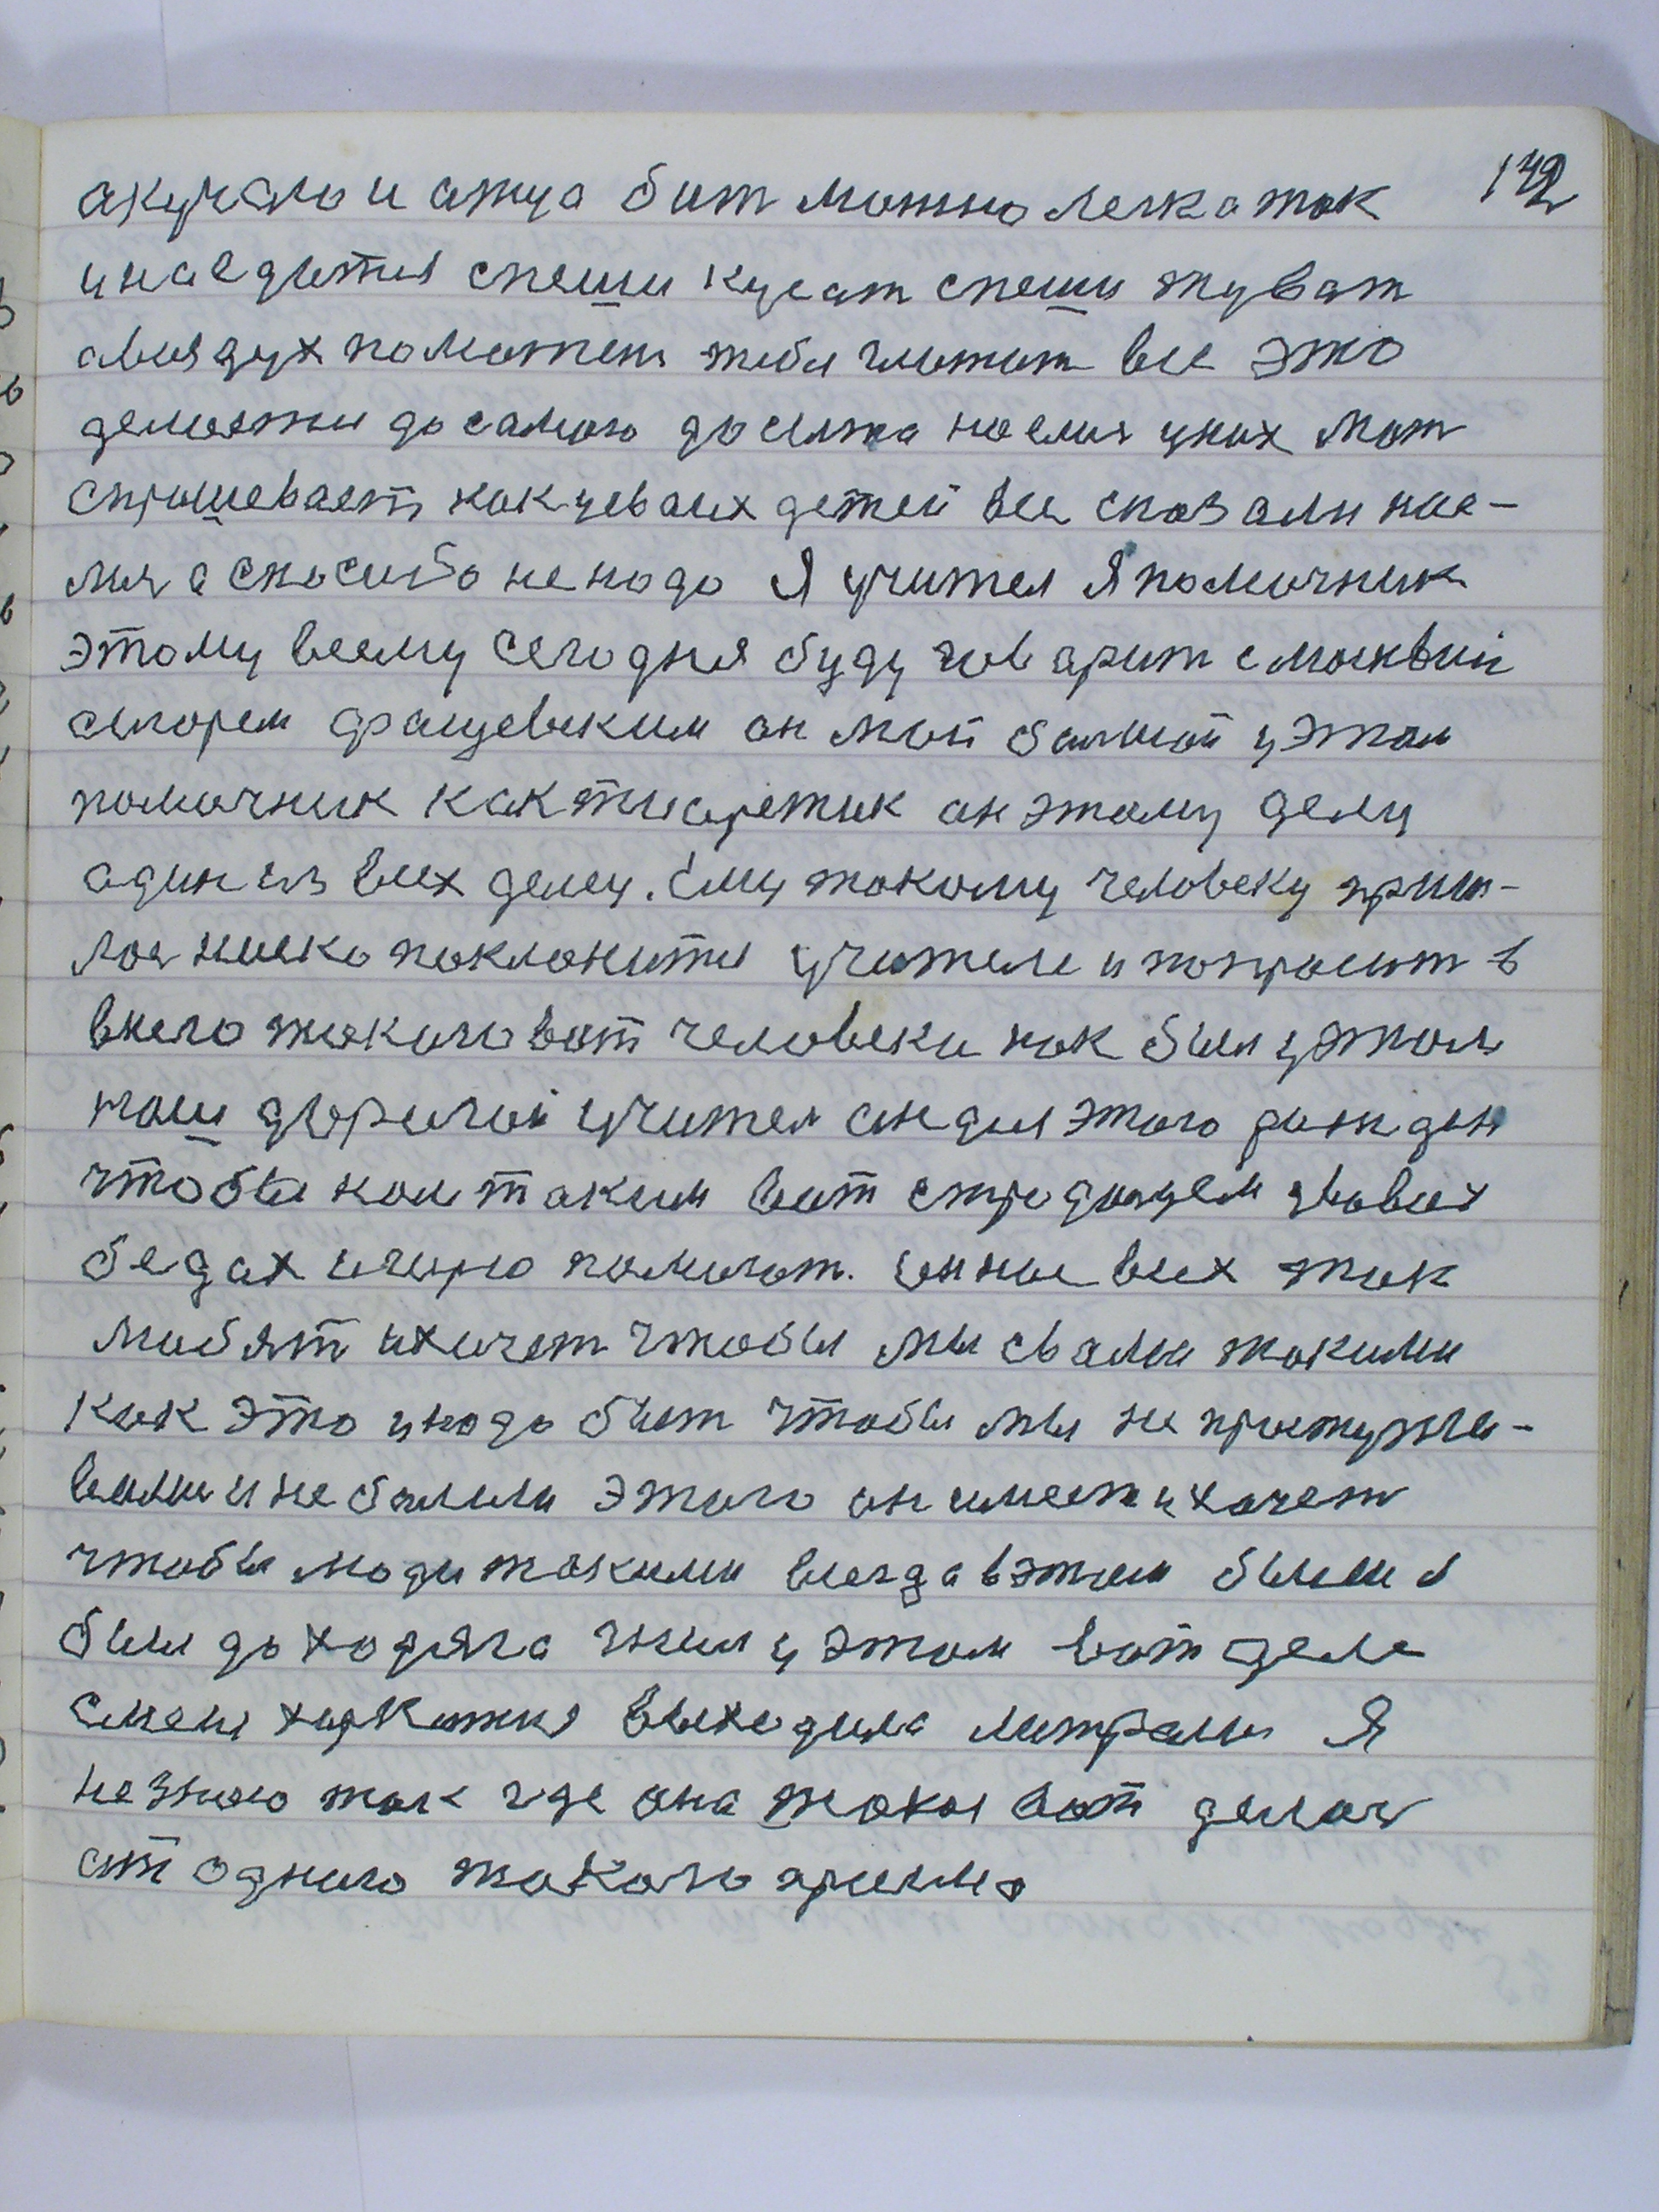 142
акурало и атца бит можно легка так
инаедятся спеши кусат спеши жуват
авоздух поможет тебя глотат все это
делаятси досамого досыта наелис уних мат
спрошеваетъ как увасих детей все сказали нае-
лися спосибо ненада Я учител Я помочник
этому всему сегодня буду гов арит смосквой
сегорем фащевским он мой балшой уэтом
помочник как тиоретик он этому делу
один из всех делец. Ему такому человеку приш-
лос ниско поклонится учителю и попросит в
внего такого вот человека как был уэтом
наш дорогой учител он для этого рожден
чтобы ком таким вот страдющем усвоих
бедах игоря помогат. Он нас всех так
любят ихочет чтобы мы свами такими
как это инада быт чтобы мы не простужи-
вали и не болели этого он имеет ихочет
чтобы люди такими всегда вэтом были я
был доходяга гнил уэтом вот деле
сменя харкатня выходила литрами Я
незнаю так где она такая вот делас
от одного такого приема